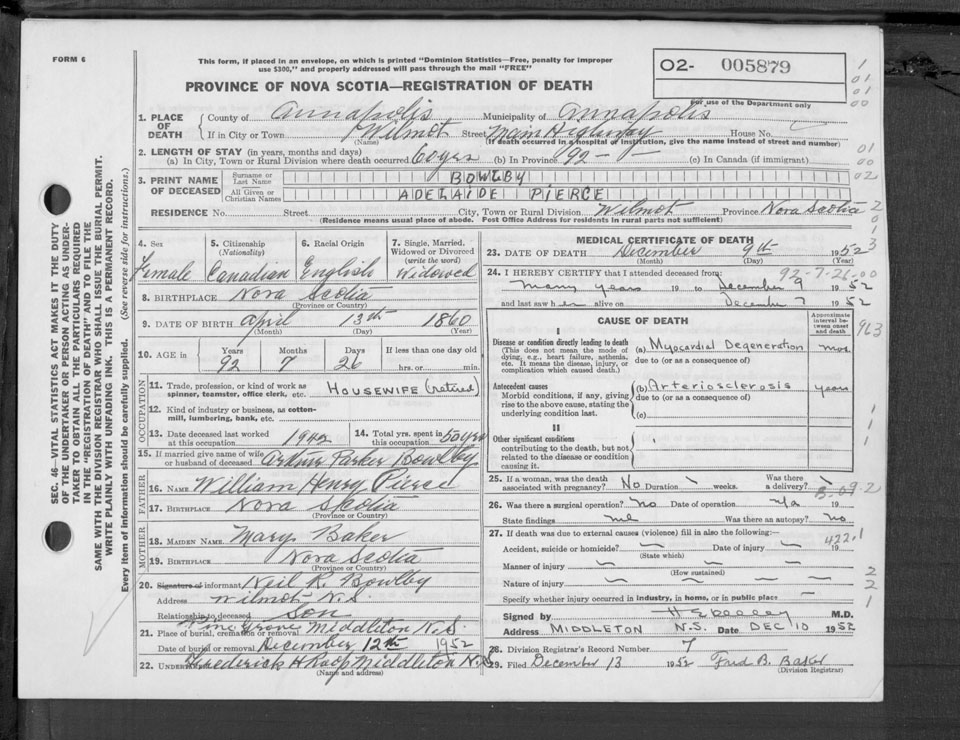 FORM 6
This form, if placed in an envelope, on which is printed "Dominion Statistics—Free, penalty for improper
use $300," and properly addressed will pass through the mail "FREE"
O2- 005879
For use of the Department only
PROVINCE OF NOVA SCOTIA—REGISTRATION OF DEATH
1. PLACE OF DEATH
County of Annapolis Municipality of Annapolis
If in City or Town Wilmot Street Main Highway House No.
(Name) (If death occurred in a hospital or institution, give the name instead of street and number)
2. LENGTH OF STAY (in years, months and days)
(a) In City, Town or Rural Division where death occurred 60 yrs (b) In Province 92 - - (c) In Canada (if immigrant)
3. PRINT NAME OF DECEASED
Surname or Last Name BOWLBY
All Given or Christian Names ADELAIDE PIERCE
RESIDENCE No. Street City, Town or Rural Division Wilmot Province Nova Scotia
(Residence means usual place of abode. Post Office Address for residents in rural parts not sufficient)
4. Sex Female
5. Citizenship (Nationality) Canadian
6. Racial Origin English
7. Single, Married, Widowed or Divorced (write the word) Widowed
8. BIRTHPLACE Nova Scotia
(Province or Country)
9. DATE OF BIRTH April 13th 1860
(Month) (Day) (Year)
10. AGE in Years Months Days If less than one day old
92 7 26 hrs. or min.
OCCUPATION
11. Trade, profession, or kind of work as
spinner, teamster, office clerk, etc. HOUSEWIFE (retired)
12. Kind of industry or business, as cotton-
mill, lumbering, bank, etc.
13. Date deceased last worked
at this occupation 1942
14. Total yrs. spent in
this occupation 50 yrs
15. If married give name of wife
or husband of deceased Arthur Parker Bowlby
FATHER
16. NAME William Henry Pierce
17. BIRTHPLACE Nova Scotia
(Province or Country)
MOTHER
18. MAIDEN NAME Mary Baker
19. BIRTHPLACE Nova Scotia
(Province or Country)
20. Signature of informant Neil R. Bowlby
Address Wilmot N.S.
Relationship to deceased Son
21. Place of burial, cremation or removal Pine Grove Middleton N.S.
Date of burial or removal December 12th 1952
22. Undertaker Frederick H Roop Middleton N.S.
(Name and address)
MEDICAL CERTIFICATE OF DEATH
23. DATE OF DEATH December 9th 1952
(Month) (Day) (Year)
24. I HEREBY CERTIFY that I attended deceased from:
92-7-26-00
many years 19 to December 9 1952
and last saw her alive on December 7 1952
CAUSE OF DEATH
Approximate interval between onset and death
I
Disease or condition directly leading to death
(This does not mean the mode of
dying, e.g., heart failure, asthenia,
etc. It means the disease, injury, or
complication which caused death.)
(a) Myocardial Degeneration mos.
due to (or as a consequence of)
Antecedent causes
Morbid conditions, if any, giving
rise to the above cause, stating the
underlying condition last.
(b) Arteriosclerosis years
due to (or as a consequence of)
(c)
II
Other significant conditions
contributing to the death, but not
related to the disease or condition
causing it.
25. If a woman, was the death
associated with pregnancy? No Duration weeks. Was there
a delivery?
26. Was there a surgical operation? No Date of operation 19
State findings Was there an autopsy? no
27. If death was due to external causes (violence) fill in also the following:—
422.1
Accident, suicide or homicide? Date of injury 19
(State which)
Manner of injury
(How sustained)
Nature of injury
Specify whether injury occurred in industry, in home, or in public place
Signed by M.D.
Address MIDDLETON N.S. Date DEC 10 1952
28. Division Registrar's Record Number 7
29. Filed December 13 1952 Fred B.
(Division Registrar)
SEC. 46—VITAL STATISTICS ACT MAKES IT THE DUTY
OF THE UNDERTAKER OR PERSON ACTING AS UNDER-
TAKER TO OBTAIN ALL THE PARTICULARS REQUIRED
IN THE "REGISTRATION OF DEATH" AND TO FILE THE
SAME WITH THE DIVISION REGISTRAR WHO SHALL ISSUE THE BURIAL PERMIT.
WRITE PLAINLY WITH UNFADING INK. THIS IS A PERMANENT RECORD.
Every item of Information should be carefully supplied. (See reverse side for instructions.)
1
01
01
00
01
00
02
963
1
1
2
2
1